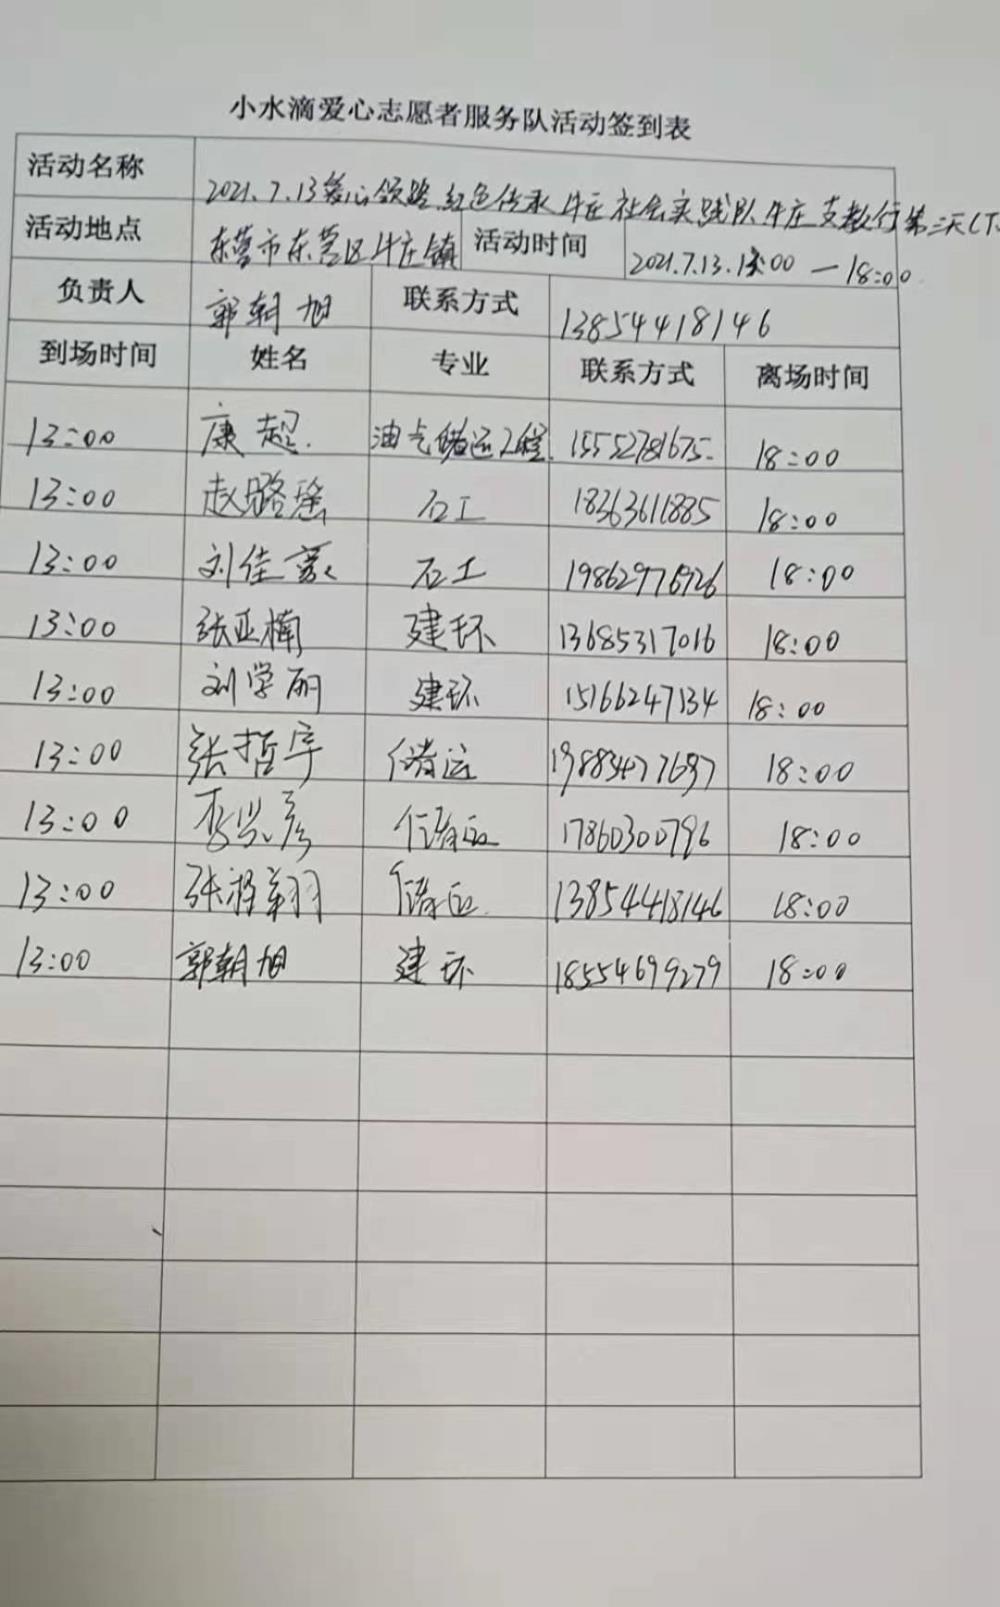 小水滴爱心志愿者服务队活动签到表
活动名称 2021.7.13爱心领路 红色传承 牛庄社会实践队牛庄支教行第三天(下
活动地点 东营市东营区牛庄镇 活动时间 2021.7.13.13:00—18:00
负责人 郭朝旭 联系方式 13854418146
到场时间 姓名 专业 联系方式 离场时间
13:00 康超 油气储运工程 15552781675 18:00
13:00 赵璐瑶 石工 18363611885 18:00
13:00 刘佳豪 石工 18:00
13:00 张亚楠 建环 13685317016 18:00
13:00 刘学丽 建环 15166247134 18:00
13:00 张哲宇 储运 18:00
13:00 李兴彦 储运 17860300796 18:00
13:00 张泽翔 储运 13854418146 18:00
13:00 郭朝旭 建环 18554699279 18:00